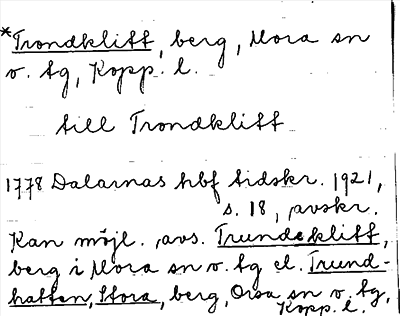 *Trondklitt, berg, Mora sn
v. tg, Kopp. l.
till Trondklitt
1778 Dalarnas hbf tidskr. 1921,
s. 18, avskr.
Kan möjl. avs. Trundeklitt,
berg i Mora sn v. tg el. Trund-
hatten, Stora, berg, Orsa sn v. tg,
Kopp. l.